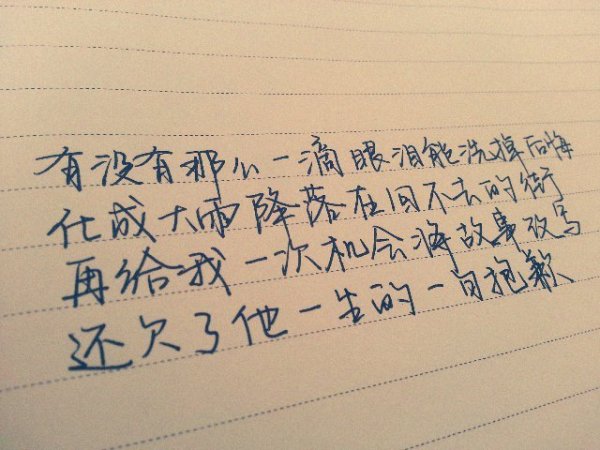 有没有那么一滴眼泪能洗掉后悔
化成大雨降落在回不去的街
再给我一次机会将故事改写
还欠了他一生的一句抱歉